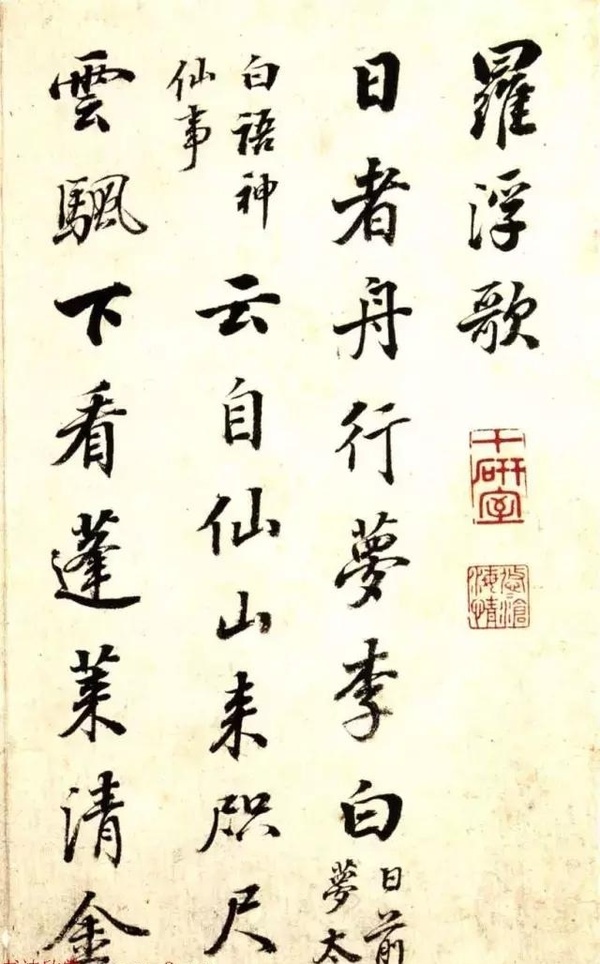 羅浮歌
十研室
日者舟行夢李白
日前
夢太
白語神
仙事
云自仙山来咫尺
雲颿下看蓬莱清金